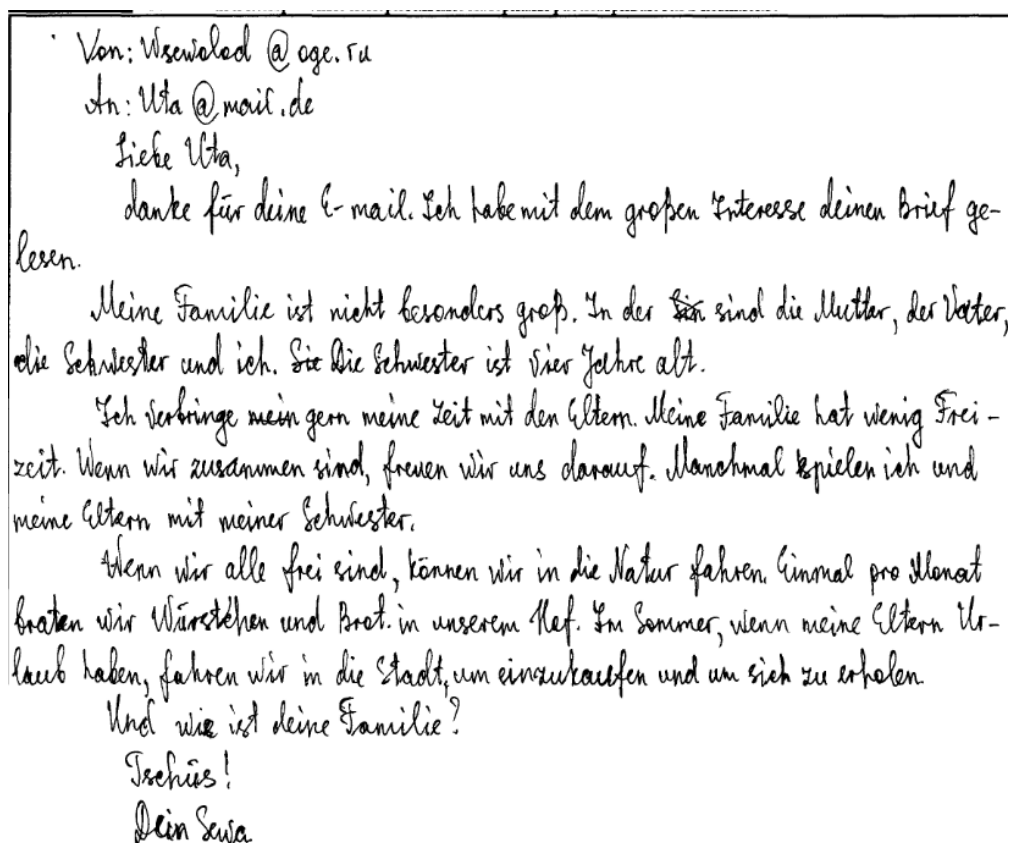 Von: Wsewolod @ oge.ru
An: Uta @ mail.de
Liebe Uta,
danke für deine E-mail. Ich habe mit dem großen Interesse deinen Brief ge-
lesen.
Meine Familie ist nicht besonders groß. In der sind die Mutter, der Vater,
die Schwester und ich. Sie Die Schwester ist vier Jahre alt.
Ich verbringe mein gern meine Zeit mit den Eltern. Meine Familie hat wenig Frei-
zeit. Wenn wir zusammen sind, freuen wir uns darauf. Manchmal spielen ich und
meine Eltern mit meiner Schwester.
Wenn wir alle frei sind, können wir in die Natur fahren. Einmal pro Monat
braten wir Würstchen und Brot in unserem Hof. Im Sommer, wenn meine Eltern Ur-
laub haben, fahren wir in die Stadt, um einzukaufen und um sich zu erholen.
Und wie ist deine Familie?
Tschüs!
Dein Sewa